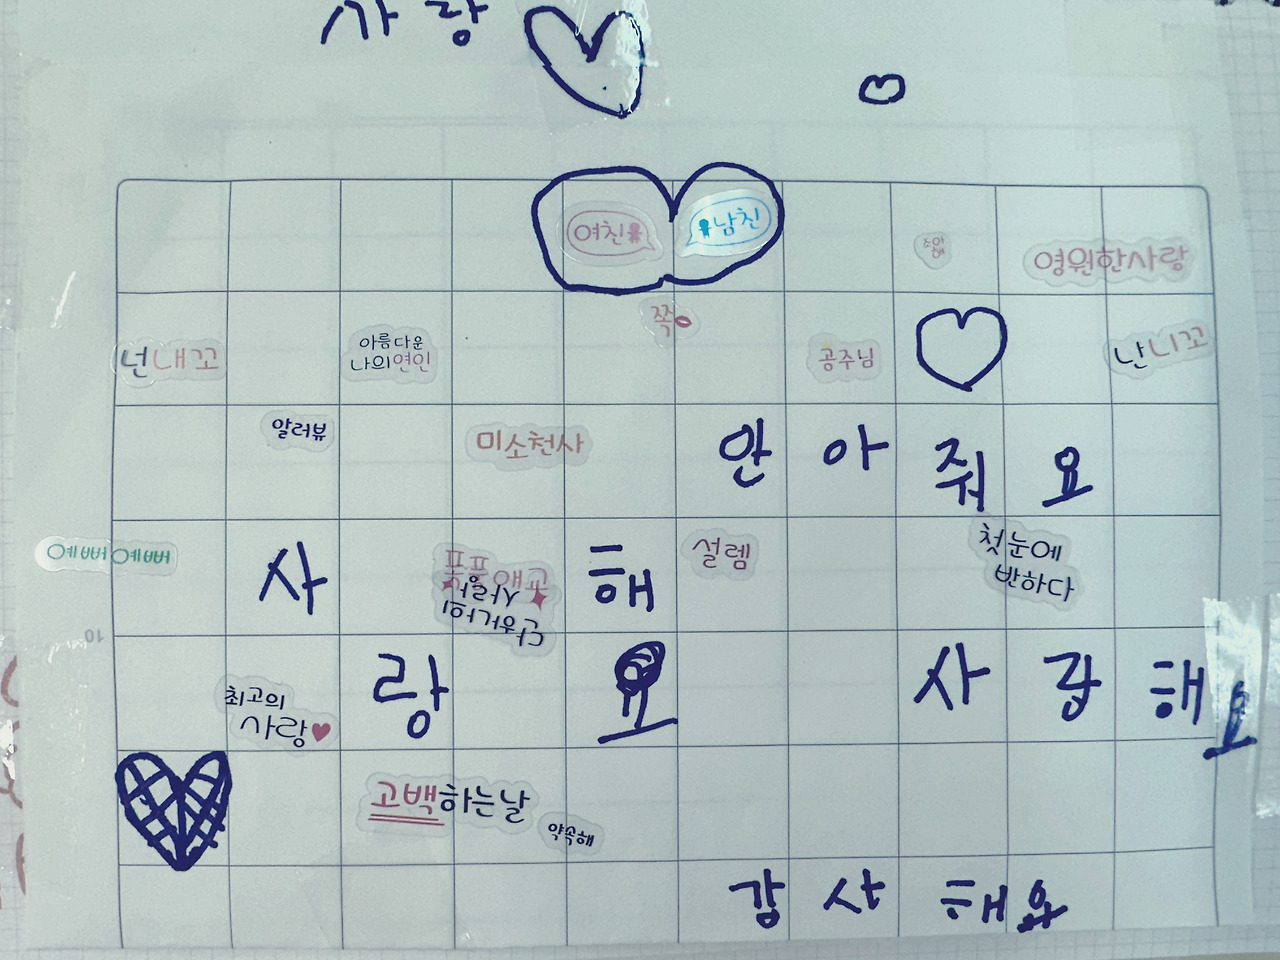 사랑
여친 남친
조인해
영원한사랑
쪽
넌내꼬
아름다운
나의연인
공주님
난니꼬
알러뷰
미소천사
안아줘요
예뻐예뻐
사 해
설렘
첫눈에
반하다
랑 요
사랑해요
최고의
사랑
고백하는날
약속해
감사해요
10